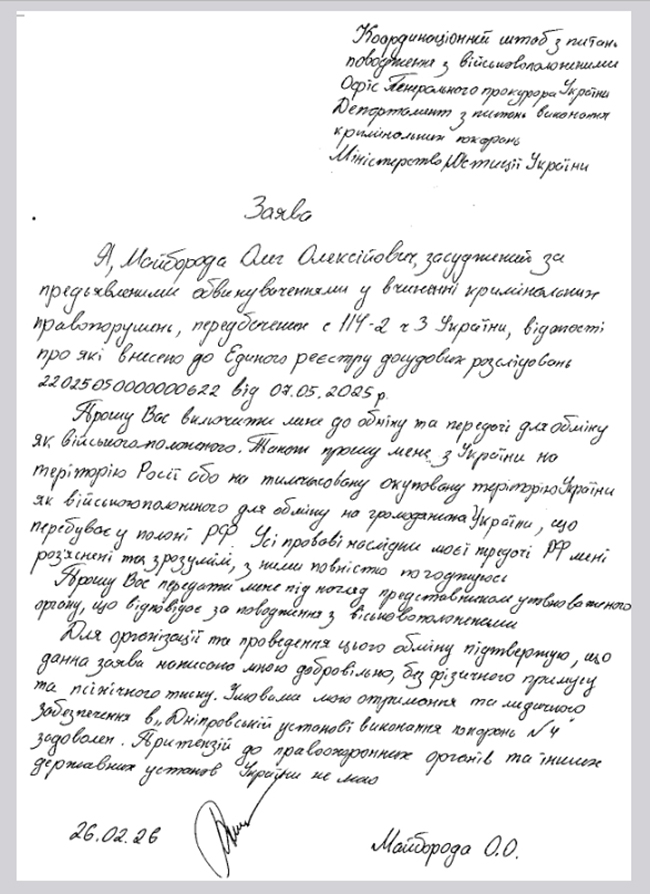 Координаціонний штаб з питань
поводження з військовополоненими
Офіс Генерального прокурора України
Департамент з питань виконання
кримінальних покарань
Міністерство Юстиції України
Заява
Я, Майборода Олег Олексійович, засуджений за
предьявленими обвинуваченнями у вчиненні кримінальних
правопорушень, передбачених с 114-2 ч 3 України, відомості
про які внесено до Единого реєстру досудових розслідовань
22025050000000622 від 07.05.2025 р.
Прошу Вас включити мене до обміну та передачі для обміну
як військовополоненого. Також прошу мене з України на
теріторію Росії або на тимчасовану окуповану теріторію України
як військовополоненого для обміну на громадянина України, що
перебуває у полоні РФ Усі провові наслідки моєї передачі РФ мені
роз'яснені та зрозумілі, з ними повністю погоджуюсь
Прошу Вас передати мене під погляд представником уповноваженого
органу, що відповідає за поводження з військовополоненими
Для організації та проведення цього обміну підтвертжую, що
данна заява написана мною добровільно, без фізичного примусу
та псіхічного тиску. Умовами мого отримання та медичного
забезпечення в „Дніпровській установі виконання покорань №4"
задоволен. Притензій до правоохоронних органів та інших
державних установ України не маю
26.02.26
Майборода О.О.